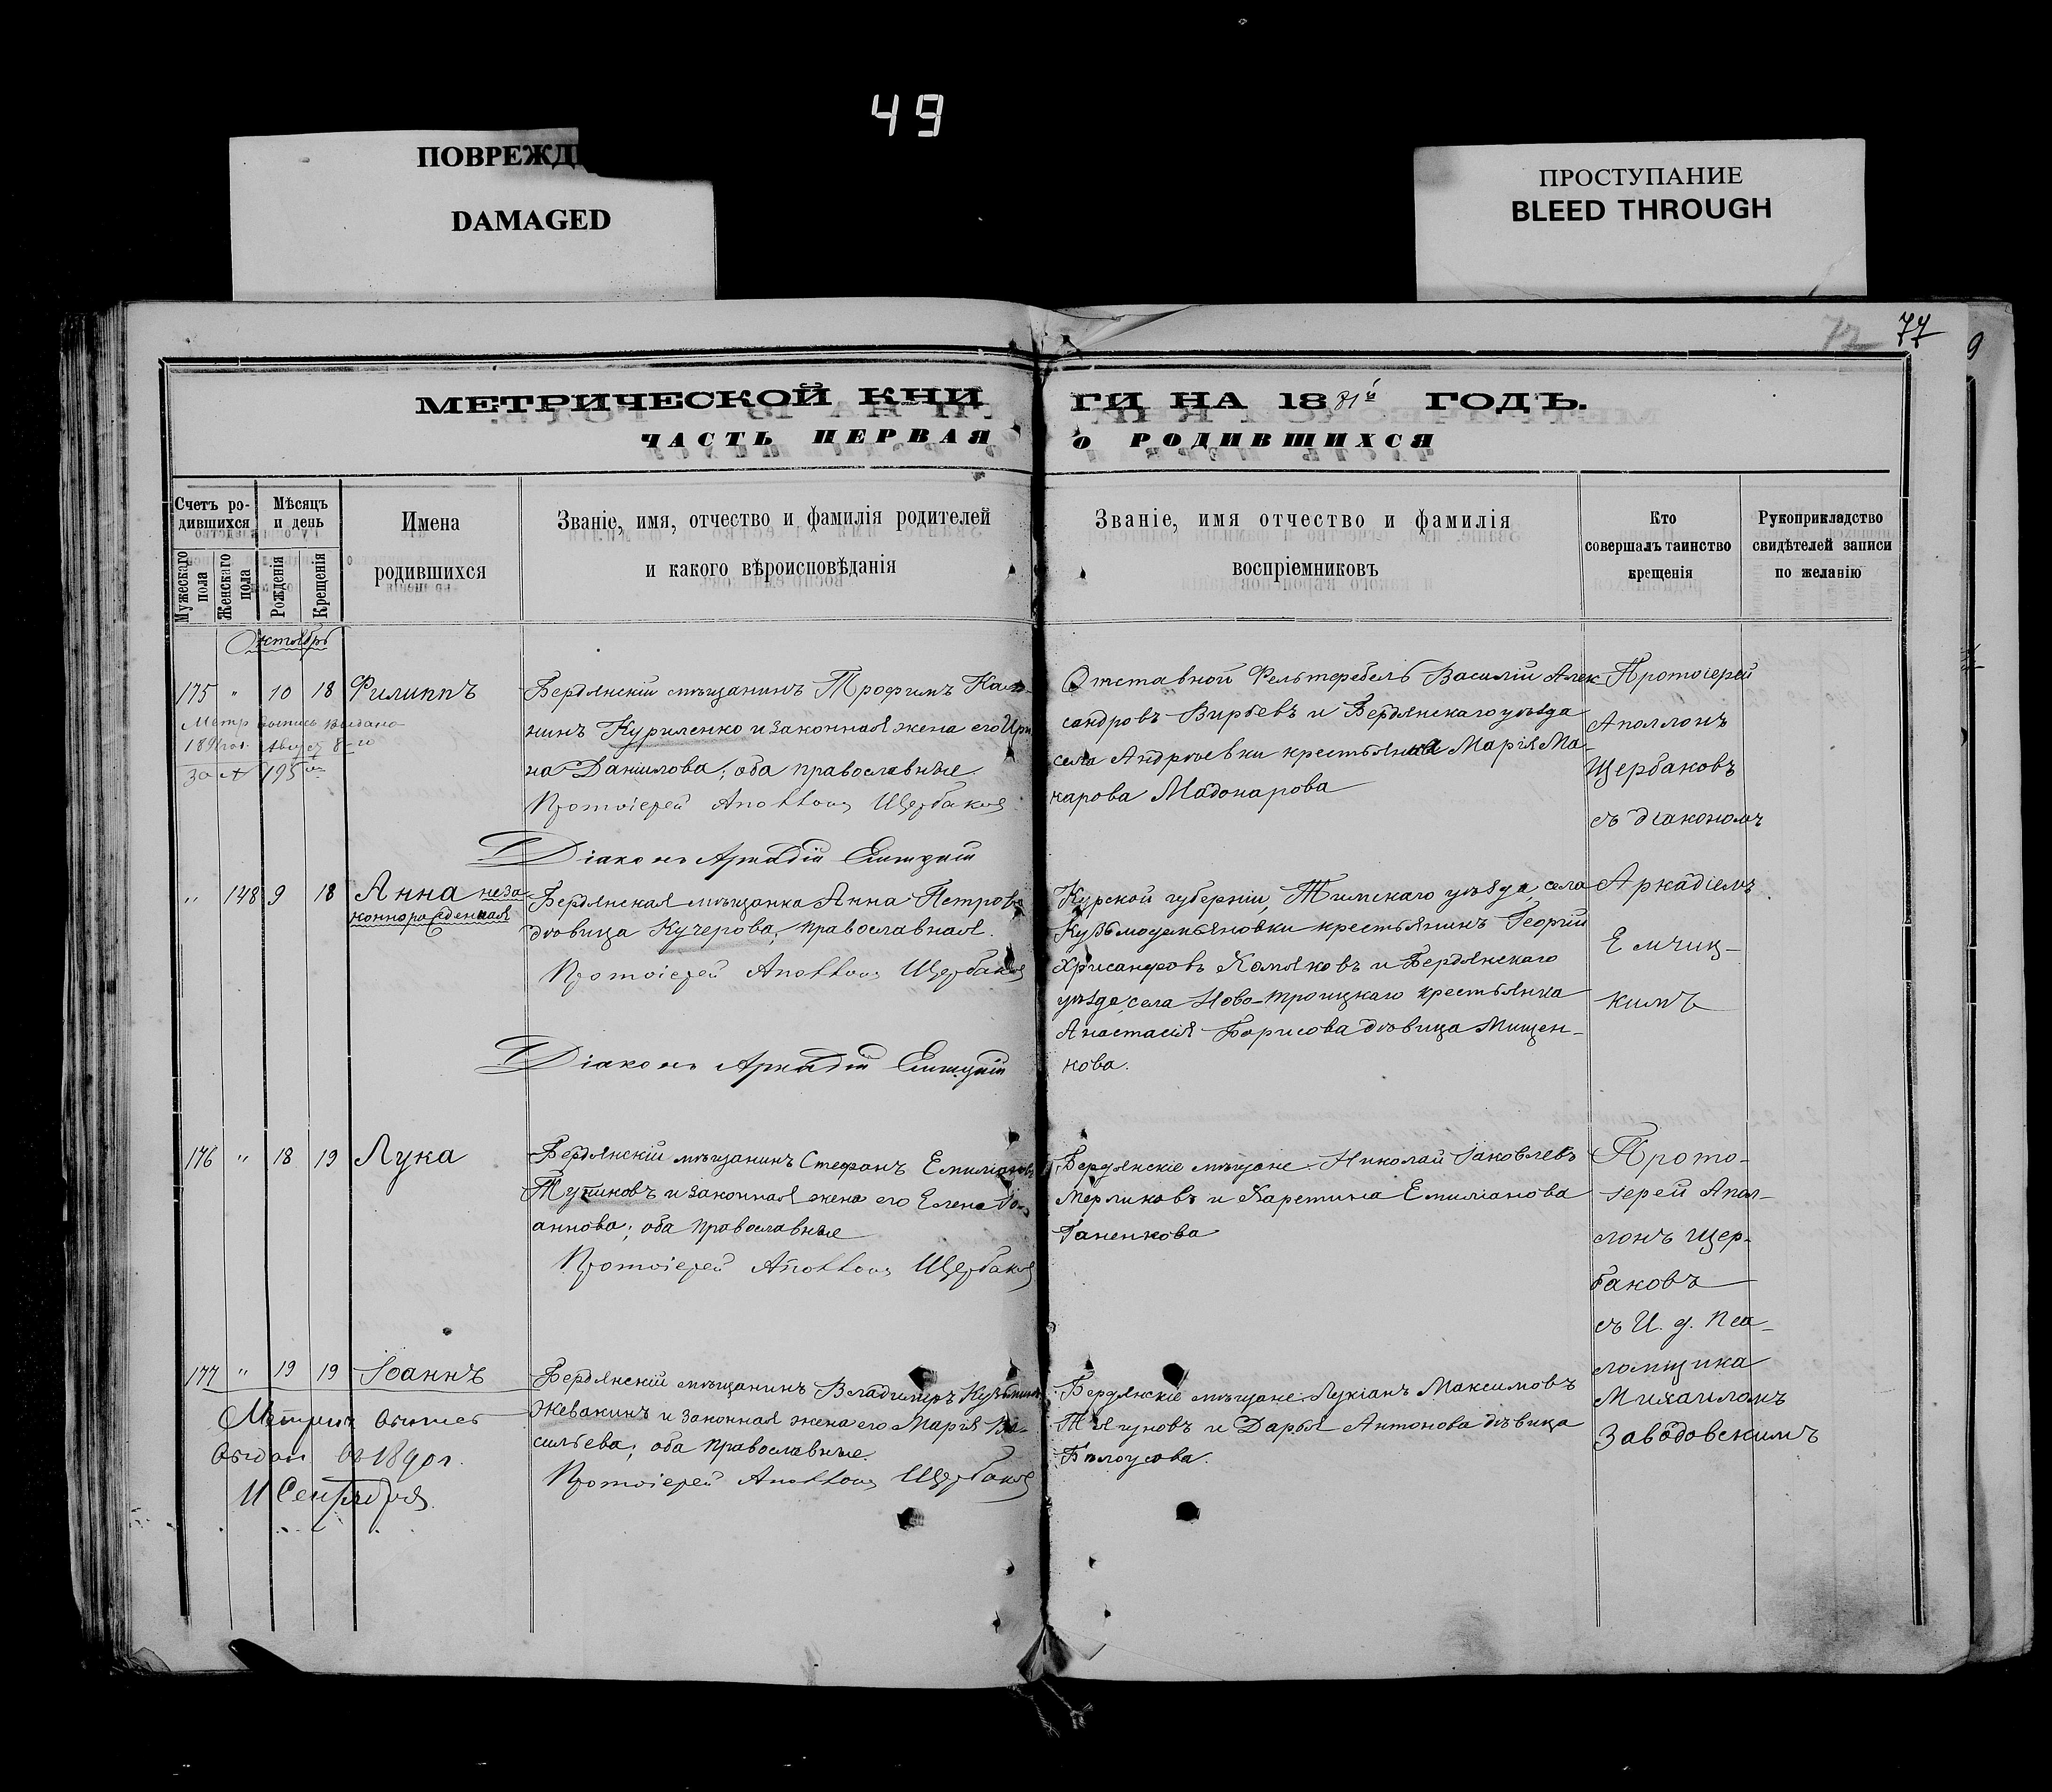 49
ПОВРЕЖД
DAMAGED
ПРОСТУПАНИЕ
BLEED THROUGH
72 77
9
МЕТРИЧЕСКОЙ КНИ ГИ НА 1881й ГОДЪ.
ЧАСТЬ ПЕРВАЯ О РОДИВШИХСЯ
Счетъ ро-
дившихся
Мужескаго пола
Женскаго пола
Мѣсяцъ
и день
Рожденія
Крещенія
Имена
родившихся
Званіе, имя, отчество и фамилія родителей
и какого вѣроисповѣданія
Званіе, имя отчество и фамилія
воспріемниковъ
Кто
совершалъ таинство
крещенія
Рукоприкладство
свидѣтелей записи
по желанію
Октябрь
175 " 10 18 Филиппъ
Метр выпись выдана
Август 8-го
за № 195
Бердянскій мѣщанинъ Трофимъ Кал-
нинъ Куриленко и законная жена его Ири
на Даніилова; оба православные.
Протоіерей Аполлонъ Щербаковъ
Діаконъ Аркадій Емчицкій
Отставной Фельтфебель Василій Алек-
сандровъ Вирьевъ и Бердянскаго уѣзда
села Андреевки крестьянка Марія Ма-
карова Мадонарова
Протоіерей
Аполлонъ
Щербаковъ
съ діакономъ
Аркадіемъ
Емчиц-
кимъ
" 148 9 18 Анна неза
коннорожденная
Бердянская мѣщанка Анна Петрова
дѣвица Кучерова, православная.
Протоіерей Аполлонъ Щербаковъ
Діаконъ Аркадій Емчицкій
Курской губерніи, Тимскаго уѣзда, села
Кузьмодемьяновки крестьянинъ Георгій
Хрисанфовъ Хомяковъ и Бердянскаго
уѣзда, села Ново-троицкаго крестьянка
Анастасія Борисова дѣвица Мищен-
кова.
176 " 18 19 Лука
Бердянскій мѣщанинъ Стефанъ Емиліановъ
Тупиковъ и законная жена его Елена Іо-
аннова; оба православные
Протоіерей Аполлонъ Щербаковъ
Бердянскіе мѣщане: Николай Іаковлевъ
Мерликовъ и Харетина Емиліанова
Ганенкова
Прото-
іерей Апол-
лонъ Щер-
баковъ
съ И. д. Пса-
ломщика
Михаиломъ
Заводовскимъ
177 " 19 19 Іоаннъ
Метрич выпись
выдан въ 1890 г.
11 Сентября
Бердянскій мѣщанинъ Владимиръ Кузьминъ
Жевакинъ и законная жена его Марія Ва-
сильева; оба православные.
Протоіерей Аполлонъ Щербаковъ
Бердянскіе мѣщане: Лукіанъ Максимовъ
Тягуновъ и Дарья Антонова дѣвица
Бѣлоусова.